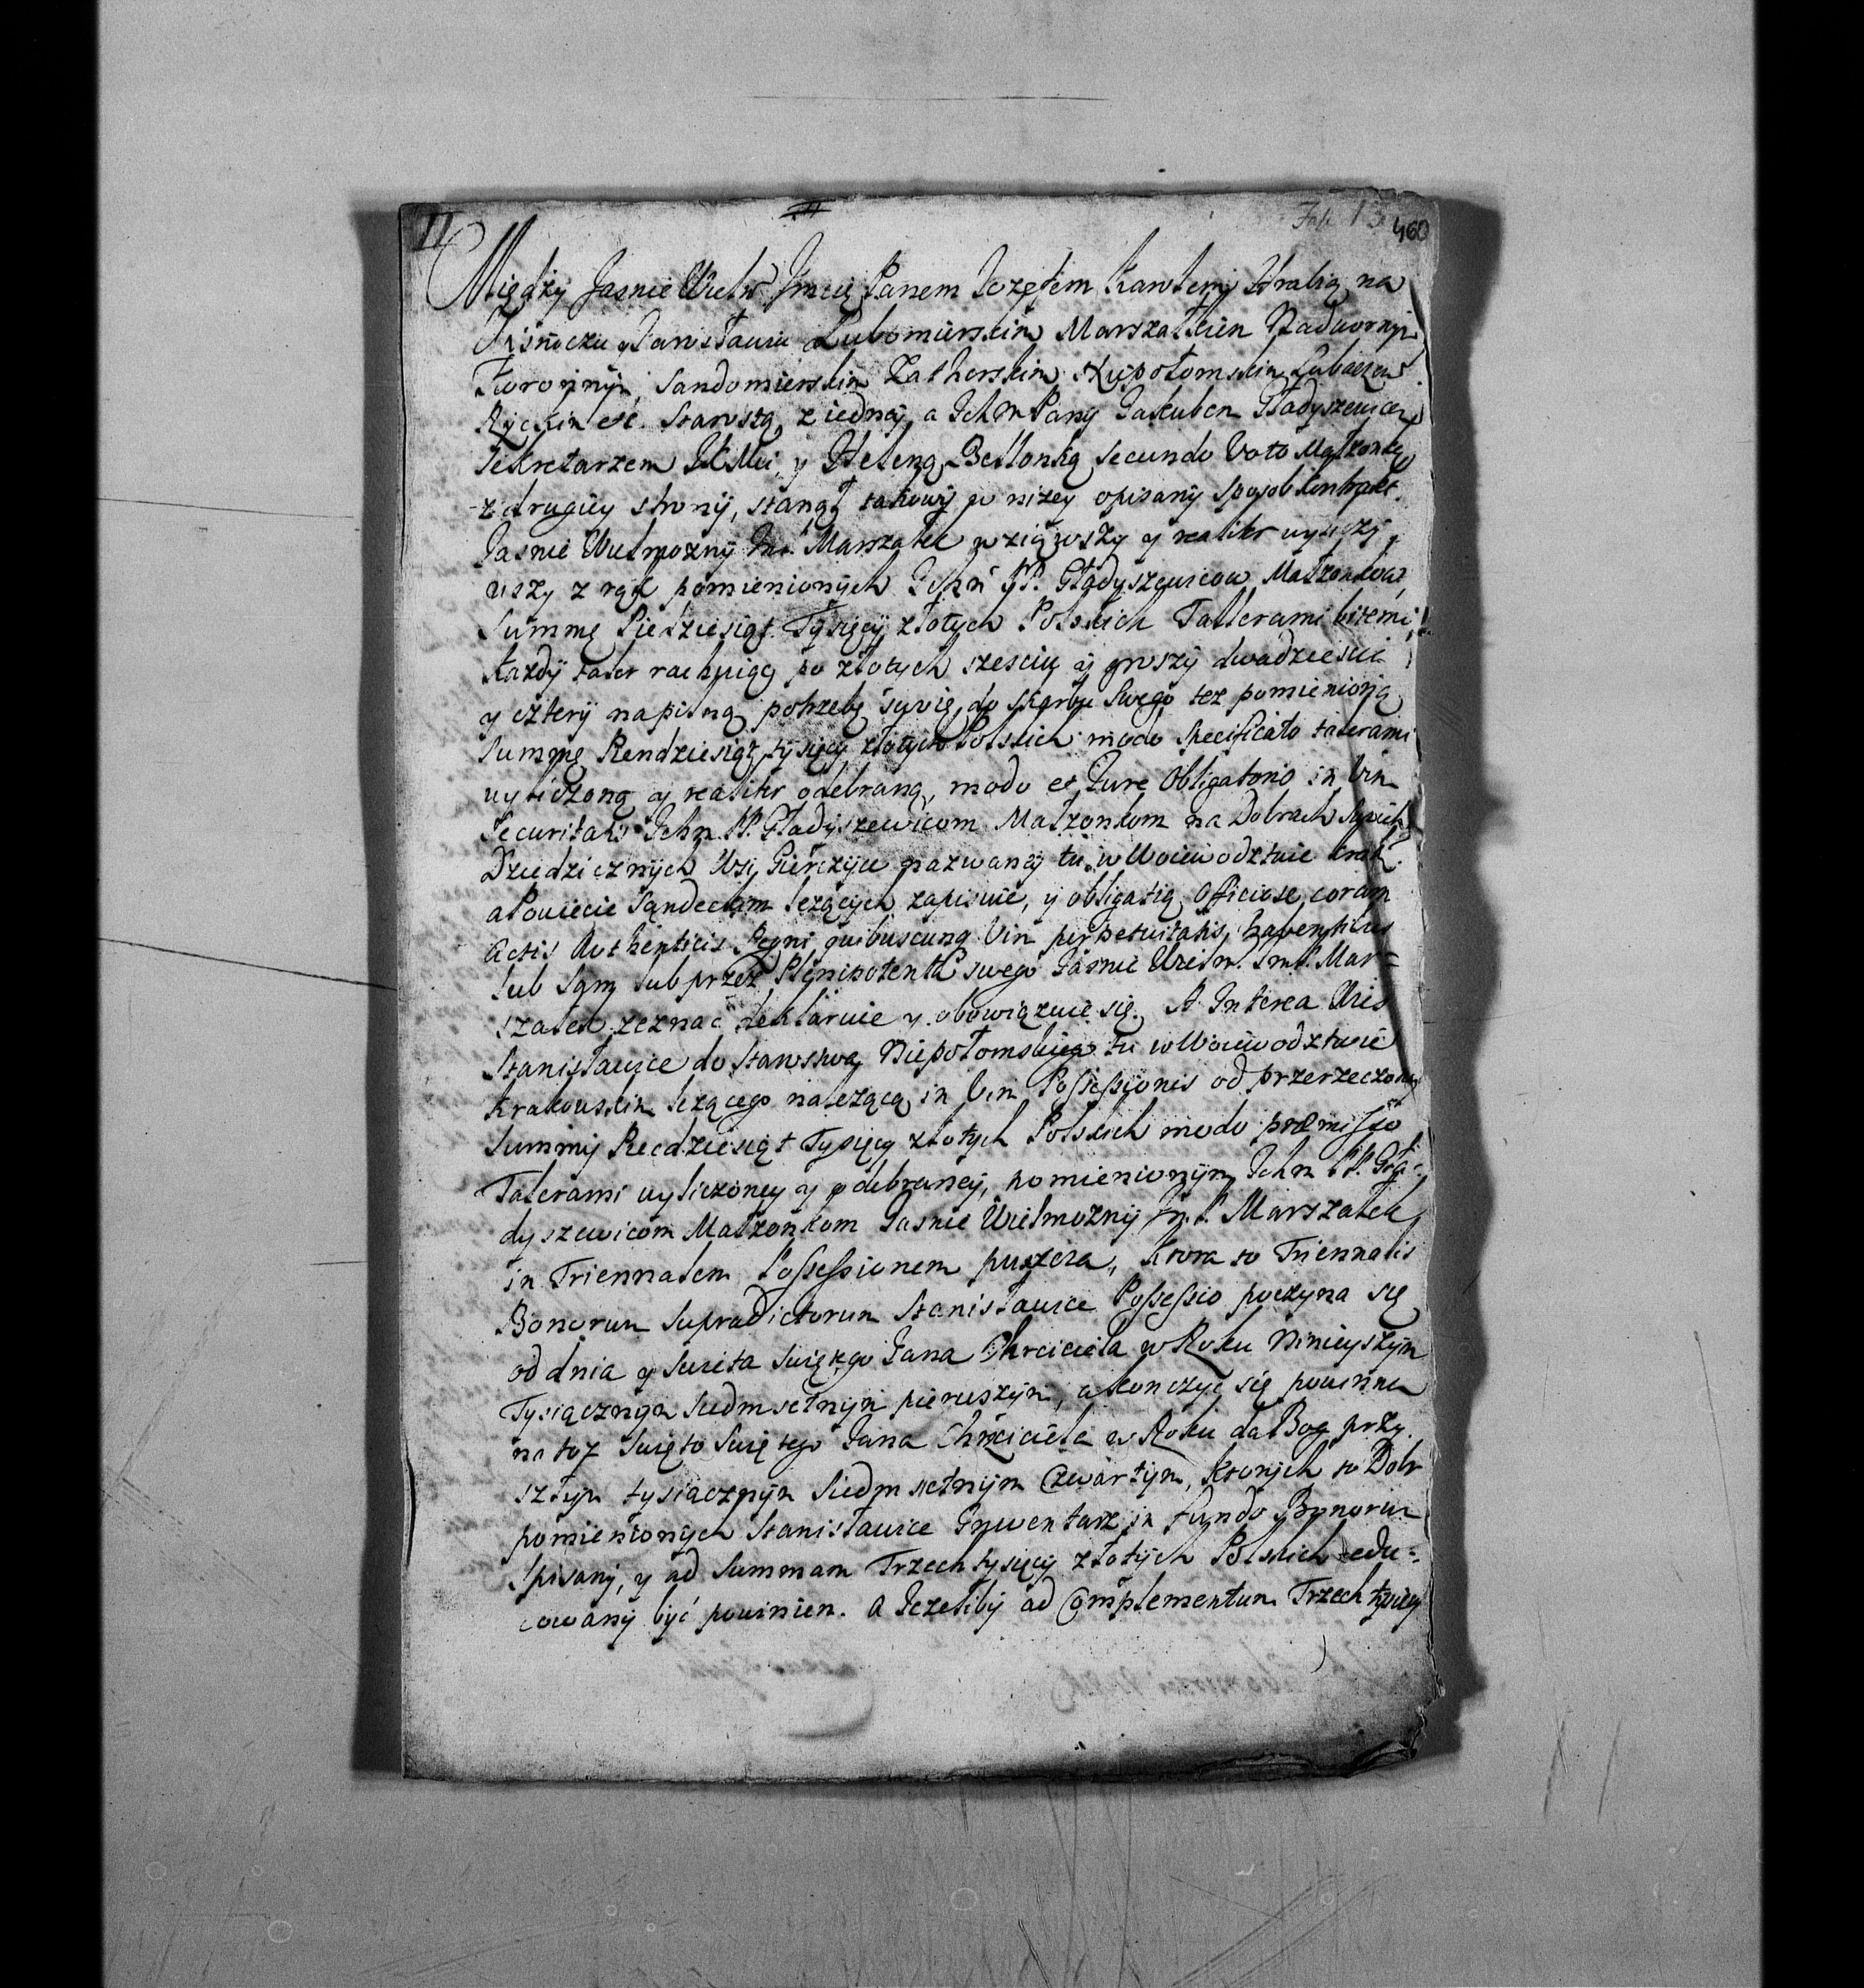 11
460
Między Jasnie Wielm Jmcią Panem Jozefem Karolem Hrabią na
Wisniczu y Jarosławiu Lubomirskim Marszałkiem Nadwornym
Koronnym, Sandomierskim Zatherskim Niepołomskim
Ryckim etc. Starostą, z iedney, a Ich Mm Pany Jakubem Gładyszewiczem
Sekretarzem JKMci, y Heleną Bellonką secundo Voto Małzonką
z drugiey strony, stanął takowy w nizey opisany sposob kontrakt.
Jasnie Wielmozny Jmć Marszałek wziąwszy y realitr wyliczy
wszy z rąk pomienionych Ichm PP. Gładyszewicow Małzonkow,
Summę Piedziesiąt Tysięcy złotych Polskich Tallerami bitemi
kazdy taler rachuiąc po złotych szesciu y groszy dwadziescia
y cztery na pilną potrzebę swoię, do skarbu swego tez pomienioną
Summę Piendziesiąt tysięcy złotych Polskich modo specificato talerami
wyliczoną y realitr odebraną, modo et Jure Obligatorio in Vim
Securitatis Ichm PP. Gładyszewicom Małzonkom na Dobrach swych
Dziedzicznych Wsi nazwaney tu w Woiewodztwie Krak.
a Powiecie Sandeckim lezących zapisuie, y obligatią officiose coram
Actis Authenticis Regni quibuscunq Vim perpetuitatis habentibus
lub sam lub przez Plenipotenta swego Jasnie Wielm. Jm P. Mar=
szałek zeznac deklaruie y obowiązuie się. A Interea Wies
Stanisławice do Starostwa Niepołomskiego tu w Woiewodztwie
Krakowskim lezącego nalezącą in Vim Possessionis od przerzeczoney
Summy Piecdziesiąt Tysięcy złotych Polskich modo præmisso
Talerami wyliczoney y odebraney, pomienionym Ichm PP. Gła=
dyszewicom Małzonkom Jasnie Wielmozny Jm. P. Marszałek
in Triennalem Possessionem puszcza, ktora to Triennalis
Bonorum Supradictorum Stanisławice Possessio poczyna się
od dnia y Swięta Swiętego Jana Chrciciela w Roku Ninieyszym
Tysiącznym Siedmsetnym pierwszym, a konczyc się powinna
na toz Swięto Swiętego Jana Chrzciciela w Roku da Bog przy
szłym tysiącznym Siedmsetnym Czwartym, ktorych to Dobr
pomienionych Stanisławice Inwentarz in fundo Bonorum
Spisany, y ad Summam Trzech tysięcy złotych Polskich redu=
cowany być powinien. A Jezeliby ad Complementum Trzech tysięcy